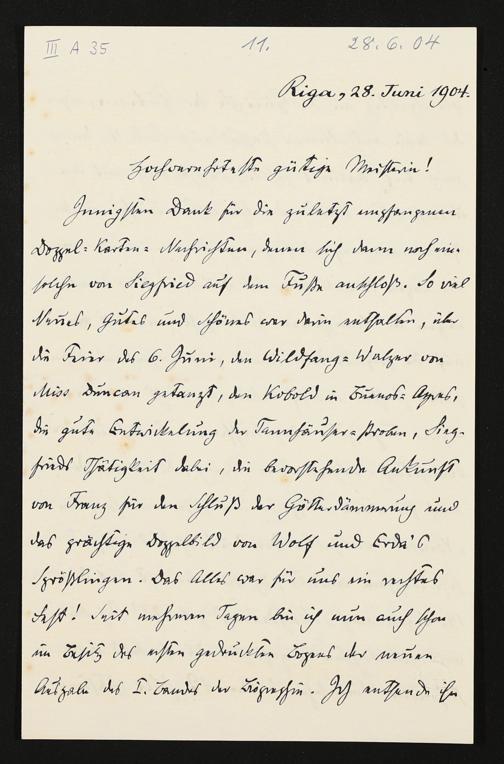 III A 35
11.
28.6.04
Riga, 28. Juni 1904.
Hochverehrteste gütige Meisterin!
Innigsten Dank für die zuletzt empfangenen
Doppel=Karten=Nachrichten, denen sich dann noch eine
solche von Siegfried auf dem Fuße anschloß. So viel
Neues, Gutes und Schönes war darin enthalten, über
die Feier des 6. Juni, den Wildfang=Walzer von
Miss Duncan getanzt, den Kobold in Buenos=Ayres,
die gute Entwickelung der Tannhäuser=Proben, Sieg-
frieds Thätigkeit dabei, die bevorstehende Ankunft
von Franz für den Schluß der Götterdämmerung und
das prächtige Doppelbild von Wolf und Erda's
Sprößlingen. Das Alles war für uns ein rechtes
Fest! Seit mehreren Tagen bin ich nun auch schon
im Besitz des ersten gedruckten Bogens der neuen
Ausgabe des I. Bandes der Biographie. Ich entsende ihn